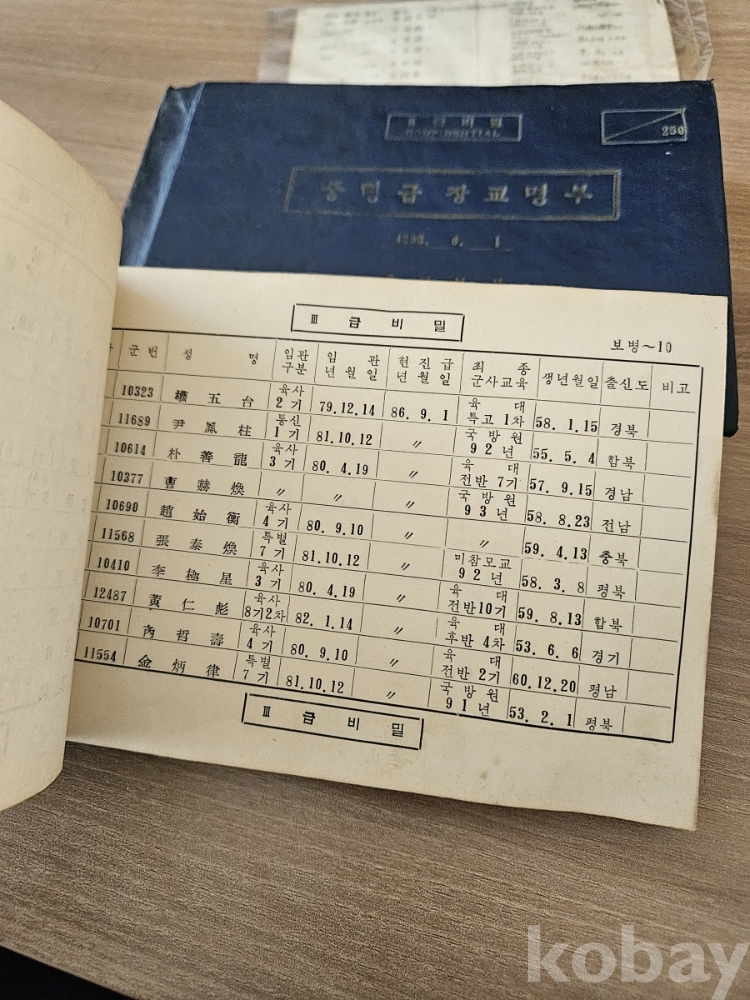 CONFIDENTIAL
250
중령급 장교명부
4293. 6. 1
Ⅲ 급 비 밀
보병~10
군번 성 명 임관구분 임 관 년 월 일 현 진 급 년 월 일 최 종 군사교육 생년월일 출신도 비고
10323 五 台 육사 2 기 79.12.14 86. 9. 1 육 대 특고 1차 58. 1.15 경북
11689 尹 鳳 柱 통신 1 기 81.10.12 〃 국 방 원 9 2 년 55. 5. 4 함북
10614 朴 善 龍 육사 3 기 80. 4.19 〃 육 대 전반 7기 57. 9.15 경남
10377 曹 煥 〃 〃 〃 국 방 원 9 3 년 58. 8.23 전남
10690 趙 始 衡 육사 4 기 80. 9.10 〃 〃 59. 4.13 충북
11568 張 泰 煥 특별 7 기 81.10.12 〃 미참모교 9 2 년 58. 3. 8 평북
10410 李 極 星 육사 3 기 80. 4.19 〃 육 대 전반10기 59. 8.13 함북
12487 黃 仁 彪 육사 8기2차 82. 1.14 〃 육 대 후반 4차 53. 6. 6 경기
10701 哲 壽 육사 4 기 80. 9.10 〃 육 대 전반 2기 60.12.20 평남
11554 金 炳 律 특별 7 기 81.10.12 〃 국 방 원 9 1 년 53. 2. 1 평북
Ⅲ 급 비 밀
kobay